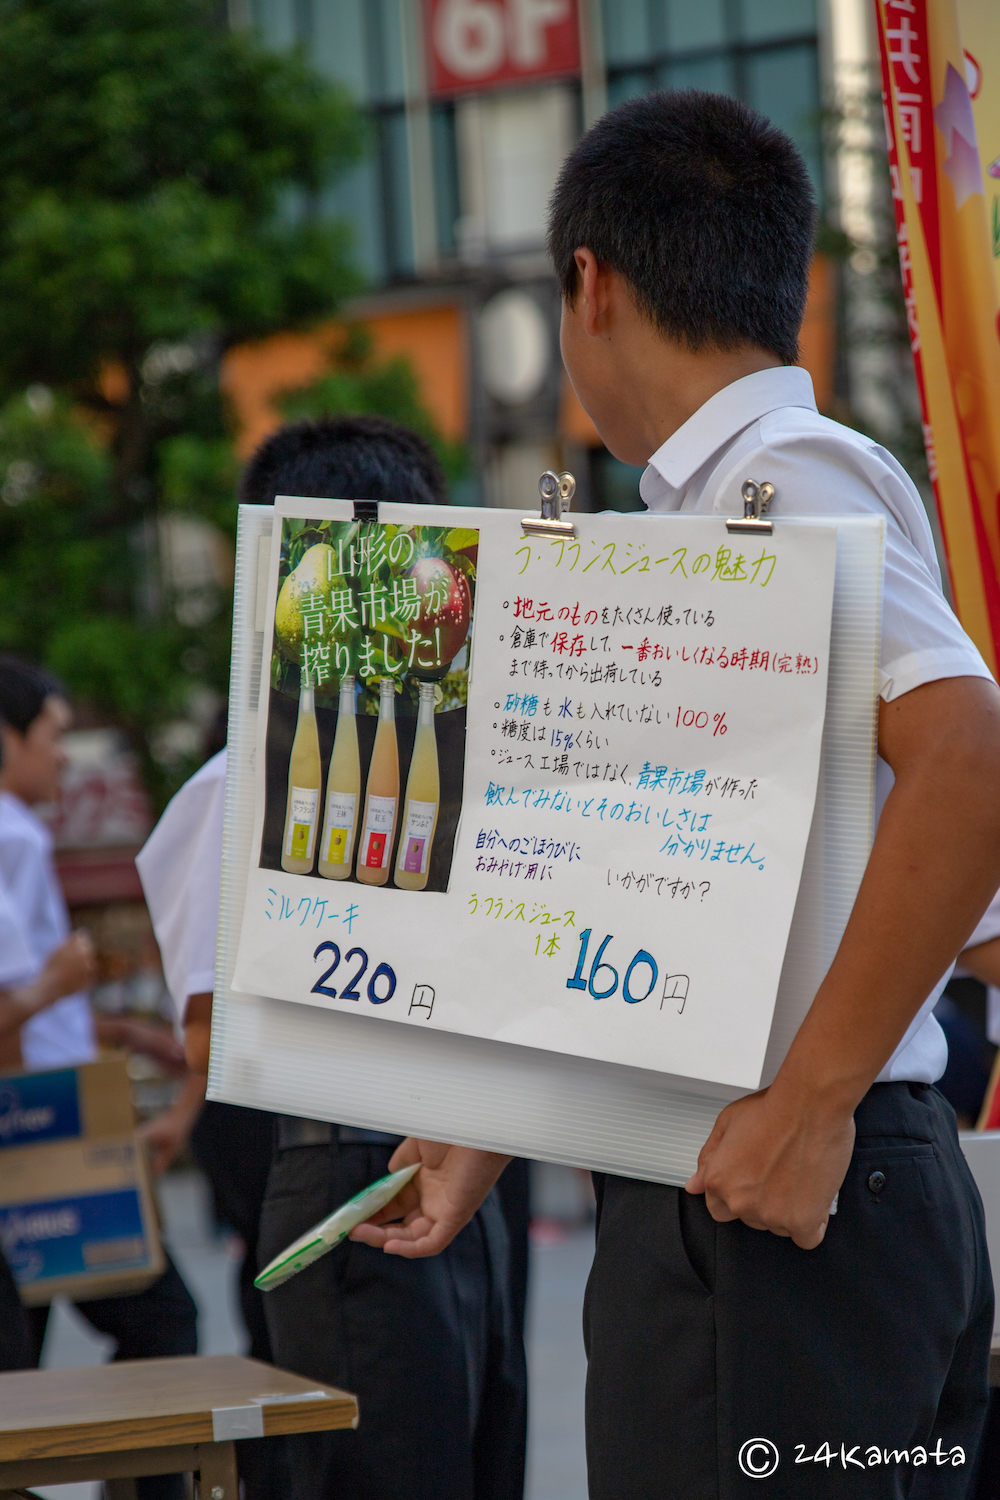 16
山形の
青果市場が
搾りました!
ラ・フランスジュースの魅力
。地元のものをたくさん使っている
。倉庫で保存して、一番おいしくなる時期(完熟)
まで待ってから出荷している
。砂糖も水も入れていない100%
。糖度は15%くらい
。ジュース工場ではなく、青果市場が作った
飲んでみないとそのおいしさは
分かりません。
自分へのごほうびに
おみやげ用に
いかがですか?
ラ・フランス
王林
紅玉
サンふじ
ミルクケーキ
220円
ラ・フランスジュース
1本 160円
© 24Kamata